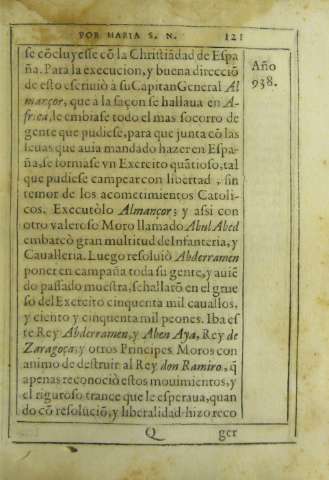 POR MARIA S. N. 121
Año
938.
se cõcluyesse cõ la Christiãdad de Espa
ña. Para la execucion, y buena direcciõ
de esto escriuiò a su Capitan General Al
mançor, que a la saçon se hallaua en A-
frica, le embiase todo el mas socorro de
gente que pudiese, para que junta cõ las
leuas que auia mandado hazer en Espa-
ña, se formase vn Exercito quãtioso, tal
que pudiese campear con libertad, sin
temor de los acometimientos Catoli-
cos. Executòlo Almançor; y assi con
otro valeroso Moro llamado Abul Abed
embarcò gran multitud de Infanteria, y
Caualleria. Luego resoluiò Abderramen
poner en campaña toda su gente, y auiẽ
do passado muestra, se hallarõ en el grue
so del Exercito cinquenta mil cauallos,
y ciento y cinquenta mil peones. Iba es-
te Rey Abderramen, y Aben Aya, Rey de
Zaragoça; y otros Principes Moros con
animo de destruir al Rey don Ramiro, q̃
apenas reconociò estos mouimientos, y
el riguroso trance que le esperaua, quan
do cõ resoluciõ, y liberalidad hizo reco
Q ger